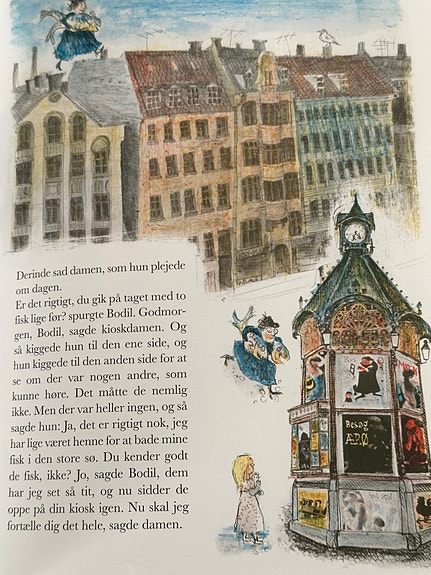 Derinde sad damen, som hun plejede
om dagen.
Er det rigtigt, du gik på taget med to
fisk lige før? spurgte Bodil. Godmor-
gen, Bodil, sagde kioskdamen. Og
så kiggede hun til den ene side, og
hun kiggede til den anden side for at
se om der var nogen andre, som
kunne høre. Det måtte de nemlig
ikke. Men der var heller ingen, og så
sagde hun: Ja, det er rigtigt nok, jeg
har lige været henne for at bade mine
fisk i den store sø. Du kender godt
de fisk, ikke? Jo, sagde Bodil, dem
har jeg set så tit, og nu sidder de
oppe på din kiosk igen. Nu skal jeg
fortælle dig det hele, sagde damen.
Besøg
ÆRØ